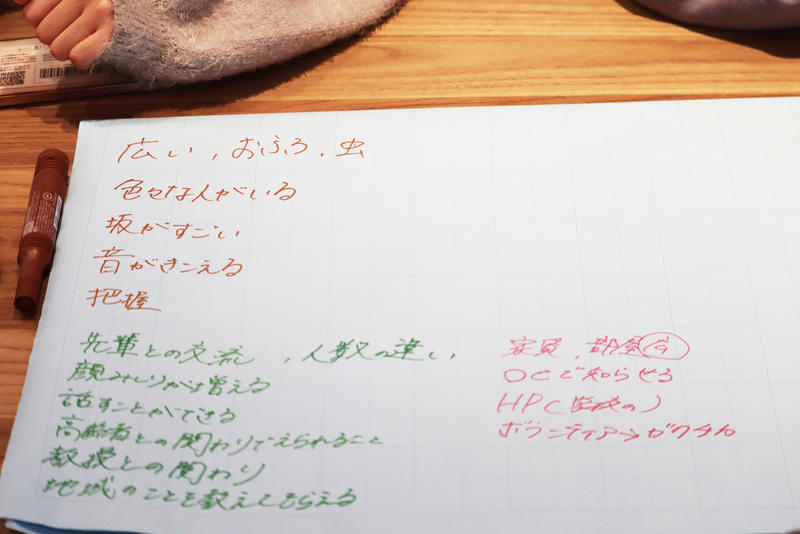 広い,おふろ,虫
色々な人がいる
坂がすごい
音がきこえる
把握
先輩との交流 ,人数の違い
顔みしりが増える
話すことができる
高齢者との関わりでえられること
教授との関わり
地域のことを教えてもらえる
定員,部屋
OCで知らせる
HP(学校の)
ボランティア→ガクチカ